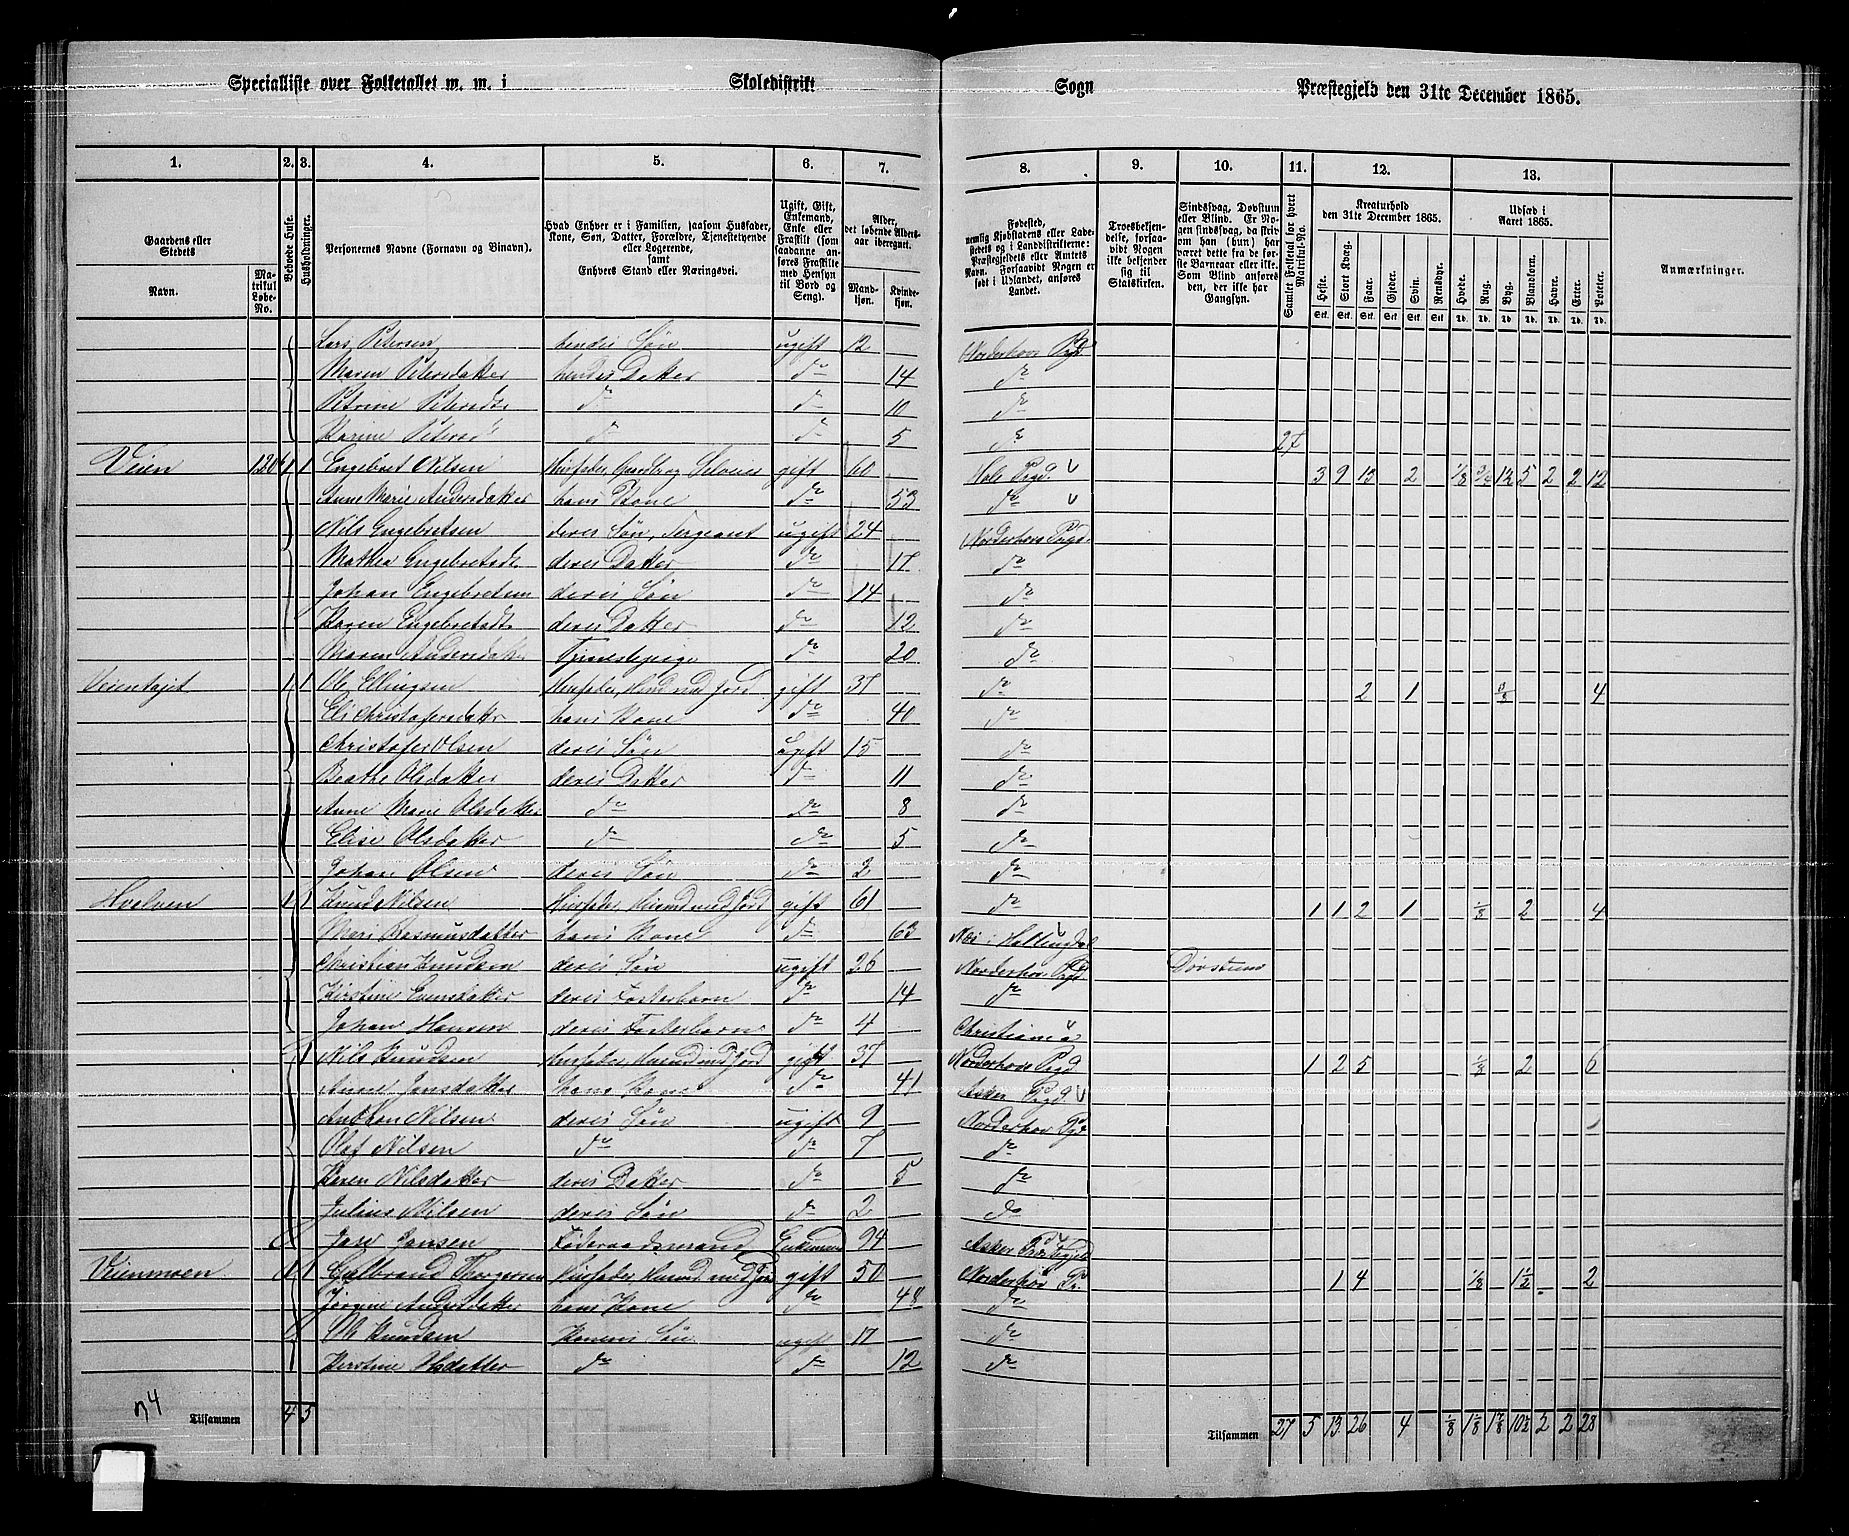 Specialliste over Folketallet m. m. i Skoledistrikt Sogn Præstegjeld den 31te December 1865.
1. 2. 3. 4. 5. 6. 7. 8. 9. 10. 11. 12. 13.
Gaardens eller Stedets Navn. Matrikul Løbe-No.
Beboede Huse.
Husholdninger.
Personernes Navne (Fornavn og Binavn).
Hvad Enhver er i Familien, saasom Husfader, Kone, Søn, Datter, Forældre, Tjenestetyende eller Logerende, samt Enhvers Stand eller Næringsvei.
Ugift, Gift, Enkemand, Enke eller Fraskilt (som saadanne anføres Fraskilte med Hensyn til Bord og Seng).
Alder, det løbende Alders-aar iberegnet. Mandkjøn. Kvindekjøn.
Fødested, nemlig Kjøbstadens eller Ladestedets og i Landdistrikterne: Præstegjeldets eller Amtets Navn. Forsaavidt Nogen er født i Udlandet, anføres Landet.
Troesbekjendelse, forsaavidt Nogen ikke bekjender sig til Statskirken.
Sindssvag, Døvstum eller Blind. Er Nogen sindssvag, da skrives om han (hun) har været dette fra de første Barneaar eller ikke. Som Blind anføres den, der ikke har Gangsyn.
Samlet Folketal for hvert Matrikul-No.
Kreaturhold den 31te December 1865. Heste. Stort Kvæg. Faar. Gjeder. Svin. Rensdyr.
Udsæd i Aaret 1865. Hvede. Rug. Byg. Blandkorn. Havre. Erter. Poteter.
Anmærkninger.
Lars Petersen hendes Søn ugift 12 Norderhov Pgd
Maren Petersdatter hendes Datter do 14 do
Petrine Petersdr do do 10 do
Karine Petersd do do 5 do 27
Veien 120 1 1 Engebret Nilsen Husfader, Gaardbrug. Selveier gift 60 Hole Pgd. 3 9 13 2 1/8 3/4 1 1/2 5 2 2 12
Anne Marie Andersdatter hans Kone do 53 do
Nils Engebretsen deres Søn, Sergeant ugift 24 Norderhovs Pgd.
Mathea Engebretsdr deres Datter do 17 do
Johan Engebretsen deres Søn do 14 do
Karen Engebretsdtr deres Datter do 12 do
Maren Andersdatter Tjenestepige do 20 do
Veientajet 1 1 Ole Ellingsen Husfader, Husmd med Jord gift 37 do 2 1 3/8 4
Eli Christofersdatter hans Kone do 40 do
Christofer Olsen deres Søn ugift 15 do
Beathe Olsdatter deres Datter do 11 do
Anne Marie Olsdatter do do 8 do
Elise Olsdatter do do 5 do
Johan Olsen deres Søn do 2 do
Hvelven 1 1 Knud Nilsen Husfader, Husmd med Jord gift 61 do 1 1 2 1 1/8 2 4
Mari Rasmusdatter hans Kone do 63 Næs i Hallingdal
Christian Knudsen deres Søn ugift 26 Norderhov Pgd. Døvstum
Kirstine Evensdatter deres Fosterbarn do 14 do
Johan Hansen deres Fosterbarn do 4 Christiania
1 Nils Knudsen Husfader, Husmd med Jord gift 37 Norderhovs Pgd 1 2 5 1/8 2 6
Anne Jansdatter hans Kone do 41 Asker Pgd.
Anthon Nilsen deres Søn ugift 9 Norderhov Pgd
Olaf Nilsen do do 7 do
Karen Nilsdatter deres Datter do 5 do
Julius Nilsen deres Søn do 2 do
Jan Jansen Føderaadsmand Enkemand 94 Asker Præstegjeld
Veienmoen 1 1 Gulbrand Thorgersen Husfader, Husmd med Jord gift 50 Norderhov Pr. 1 4 1/8 1 1/2 2
Jørgine Andersdatter hans Kone do 48 do
Ole Knudsen Konens Søn ugift 17 do
Kirstine Olsdatter do do 12 do
34 Tilsammen 4 5 Tilsammen 27 5 13 26 4 1/8 1 1/8 1 7/8 10 1/2 2 2 28